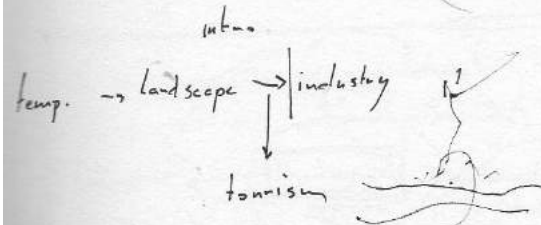 intro
temp. → landscape → industry
tourism